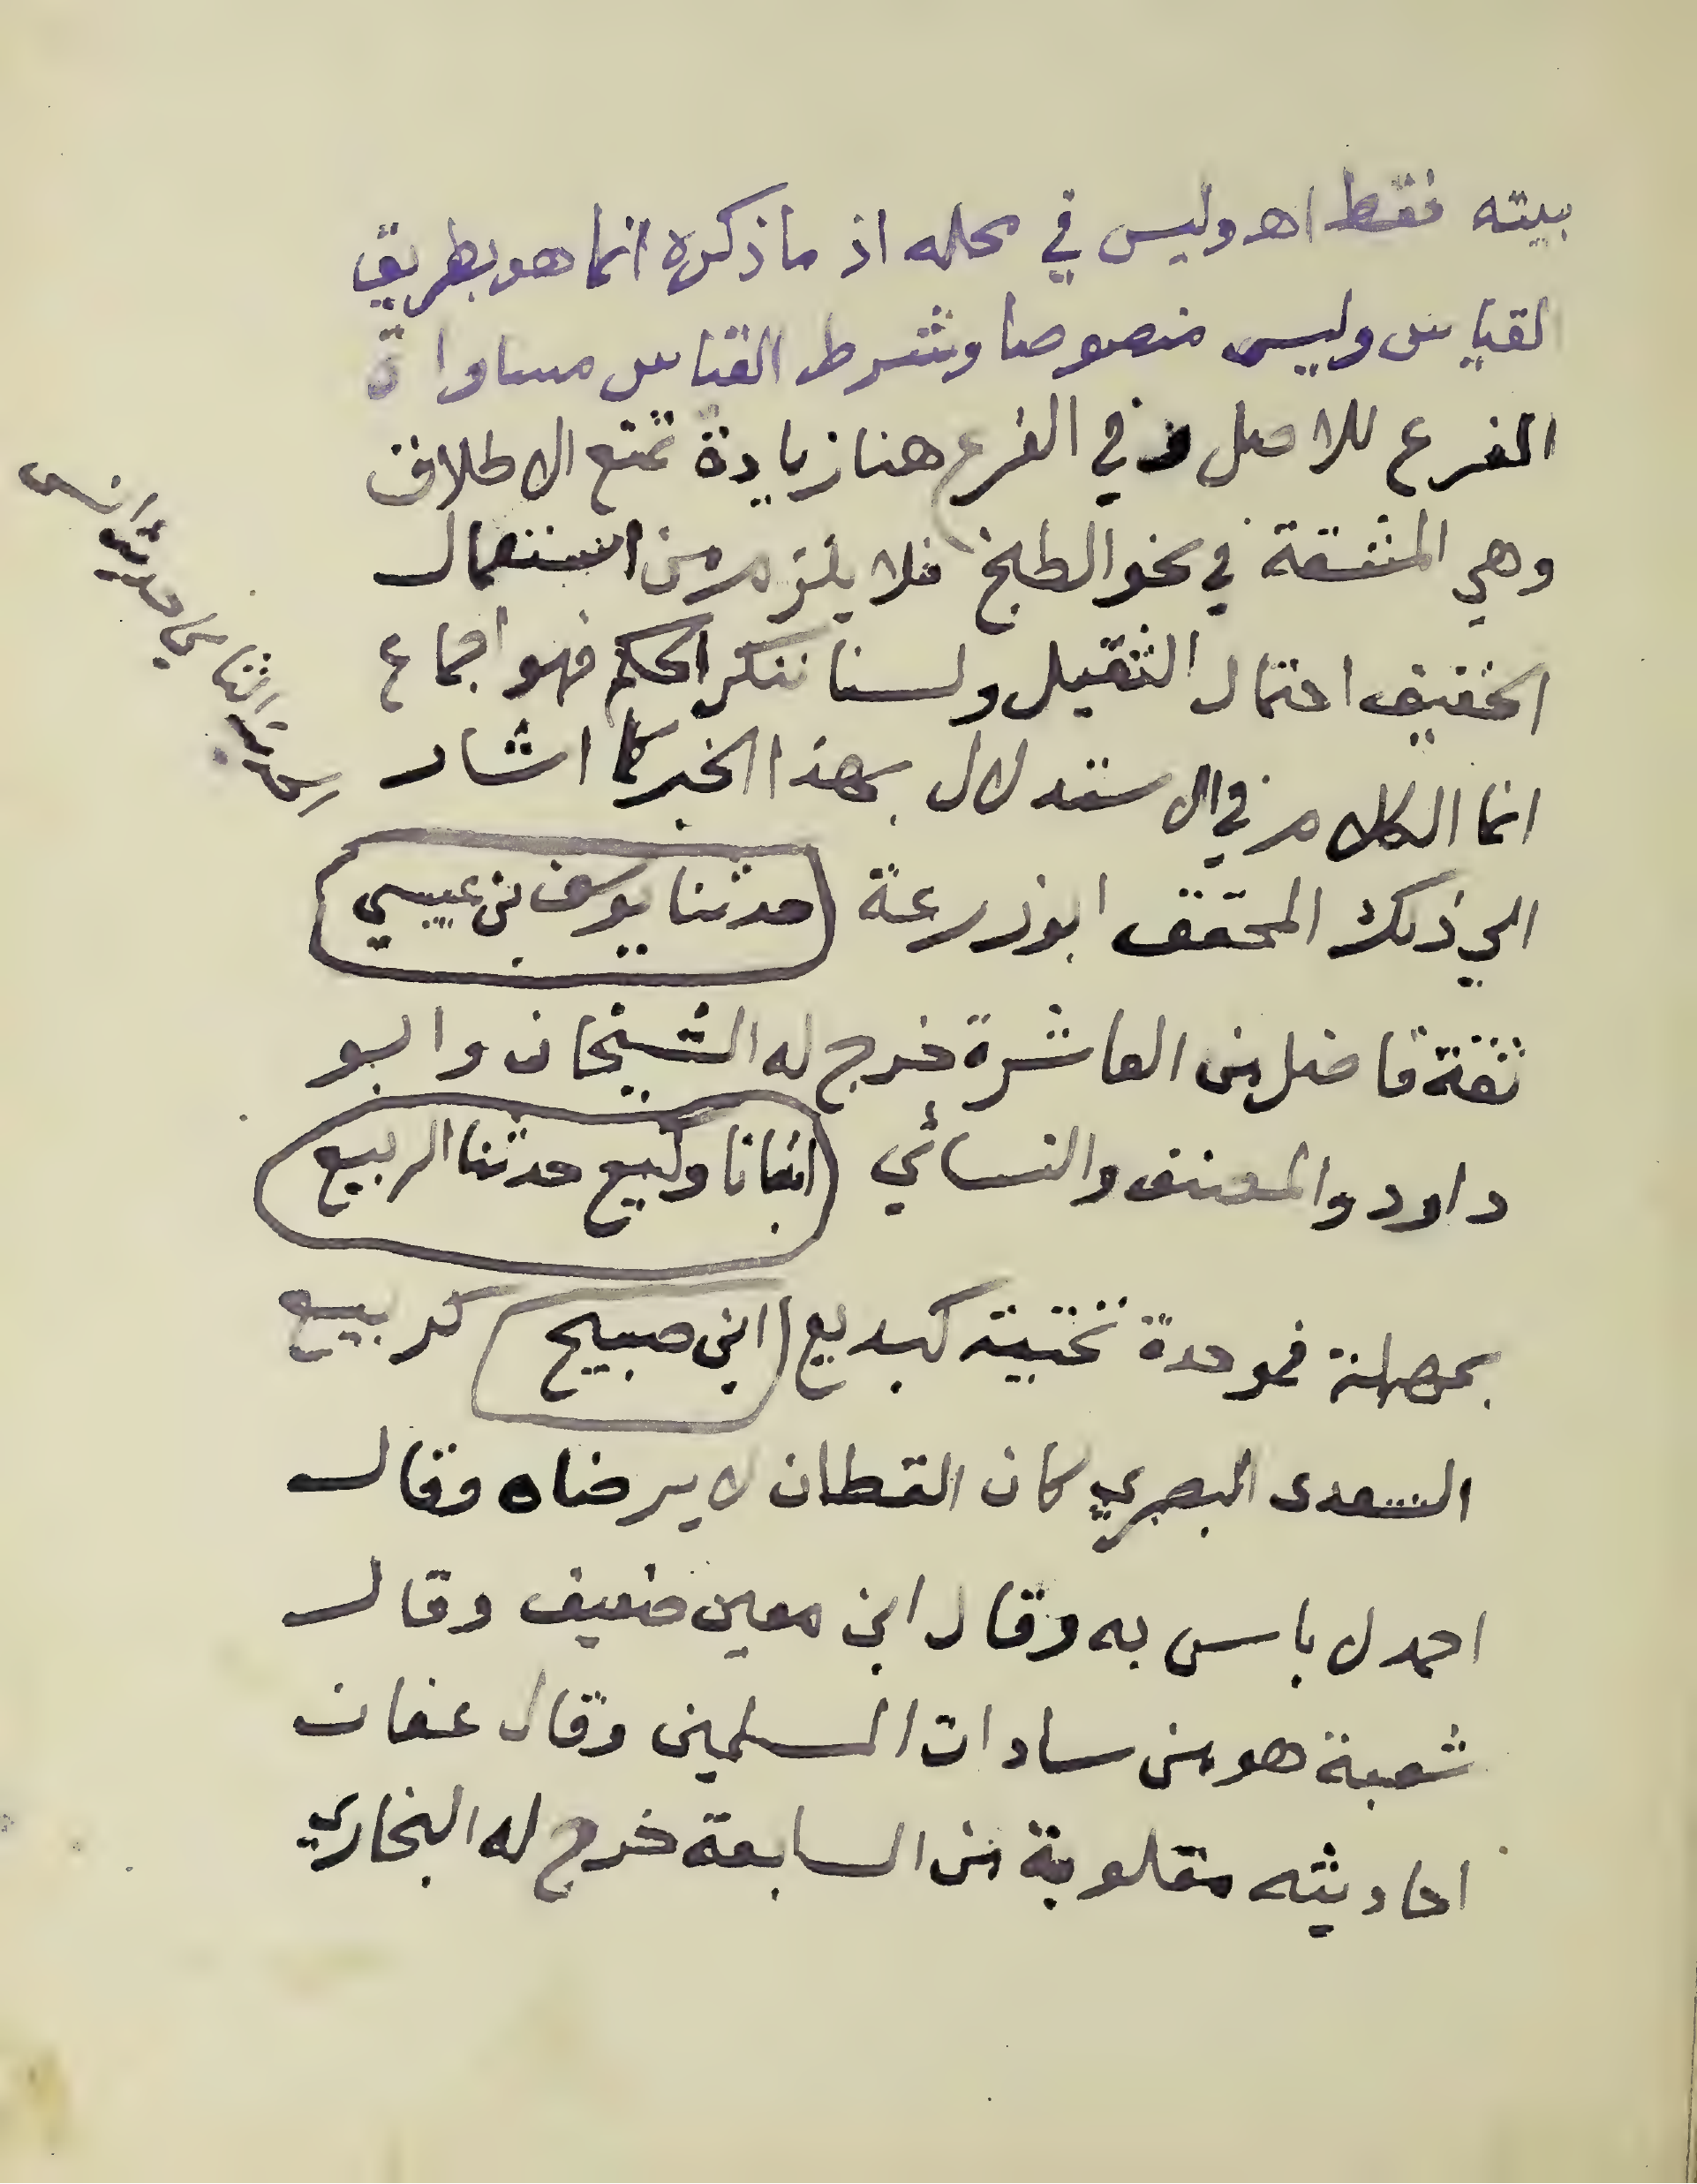 بيته فقط اهـ وليس في محله اذ ما ذكره انما هو بطريق
القياس وليس منصوصا وشرط القياس مساواة
الفرع للاصل وفي الفرع هنا زيادة تمنع الاطلاق
وهي المشقة في نحو الطبخ فلا يلزم من استعمال
الخفيف احتمال الثقيل ولسنا ننكر الحكم فهو اجماع
انما الكلام في الاستدلال بهذا الخبر كما اشار
الي ذلك المحقق ابو زرعة (حدثنا يوسف بن عيسي)
ثقة فاضل من العاشرة خرج له الشيخان وابو
داود والمصنف والنسائي (انبانا وكيع حدثنا الربيع
بمهملة فموحدة تحتيته كبديع (ابن صبيح) كربيع
السعدى البصري كان القطان لا يرضاه وقال
احمد ل باس به وقال ابن معين ضعيف وقال
شعبة هو من سادات المسلمين وقال عفان
احاديثه مقلوبة من السابعة خرج له البخاري
الحديث الثاني حديث انس